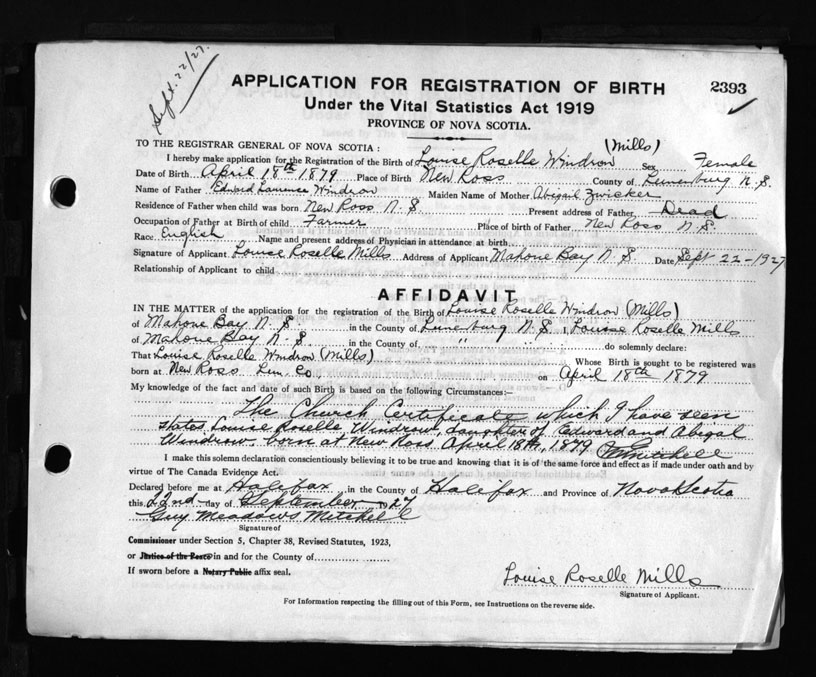 Sept. 22/27.
APPLICATION FOR REGISTRATION OF BIRTH 2393
Under the Vital Statistics Act 1919
PROVINCE OF NOVA SCOTIA.
TO THE REGISTRAR GENERAL OF NOVA SCOTIA: (Mills)
I hereby make application for the Registration of the Birth of Louise Roselle Windrow Sex Female
Date of Birth April 18th 1879 Place of Birth New Ross County of Lunenburg N. S.
Name of Father Edward Windrow Maiden Name of Mother Abigail Zwicker
Residence of Father when child was born New Ross N S Present address of Father Dead
Occupation of Father at Birth of child Farmer Place of birth of Father New Ross N. S.
Race English Name and present address of Physician in attendance at birth
Signature of Applicant Louise Roselle Mills Address of Applicant Mahone Bay N. S Date Sept 22-1927
Relationship of Applicant to child
AFFIDAVIT
IN THE MATTER of the application for the registration of the Birth of Louise Roselle Windrow (Mills)
of Mahone Bay N. S. in the County of Lunenburg N. S I, Louise Roselle Mills
of Mahone Bay N. S. in the County of " " do solemnly declare:
That Louise Roselle Windrow (Mills) Whose Birth is sought to be registered was
born at New Ross Lun. Co., on April 18th 1879
My knowledge of the fact and date of such Birth is based on the following Circumstances:—
The Church Certificate which I have seen
states Louise Roselle Windrow, daughter of Edward and Abigal
Windrow born at New Ross April 18th, 1879
I make this solemn declaration conscientiously believing it to be true and knowing that it is of the same force and effect as if made under oath and by
virtue of The Canada Evidence Act.
Declared before me at Halifax in the County of Halifax and Province of Nova Scotia
this 22nd day of September 1927
Guy Meadows Mitchell
Signature of
Commissioner under Section 5, Chapter 38, Revised Statutes, 1923,
or Justice of the Peace in and for the County of
If sworn before a Notary Public affix seal.
Louise Roselle Mills
Signature of Applicant.
For Information respecting the filling out of this Form, see Instructions on the reverse side.